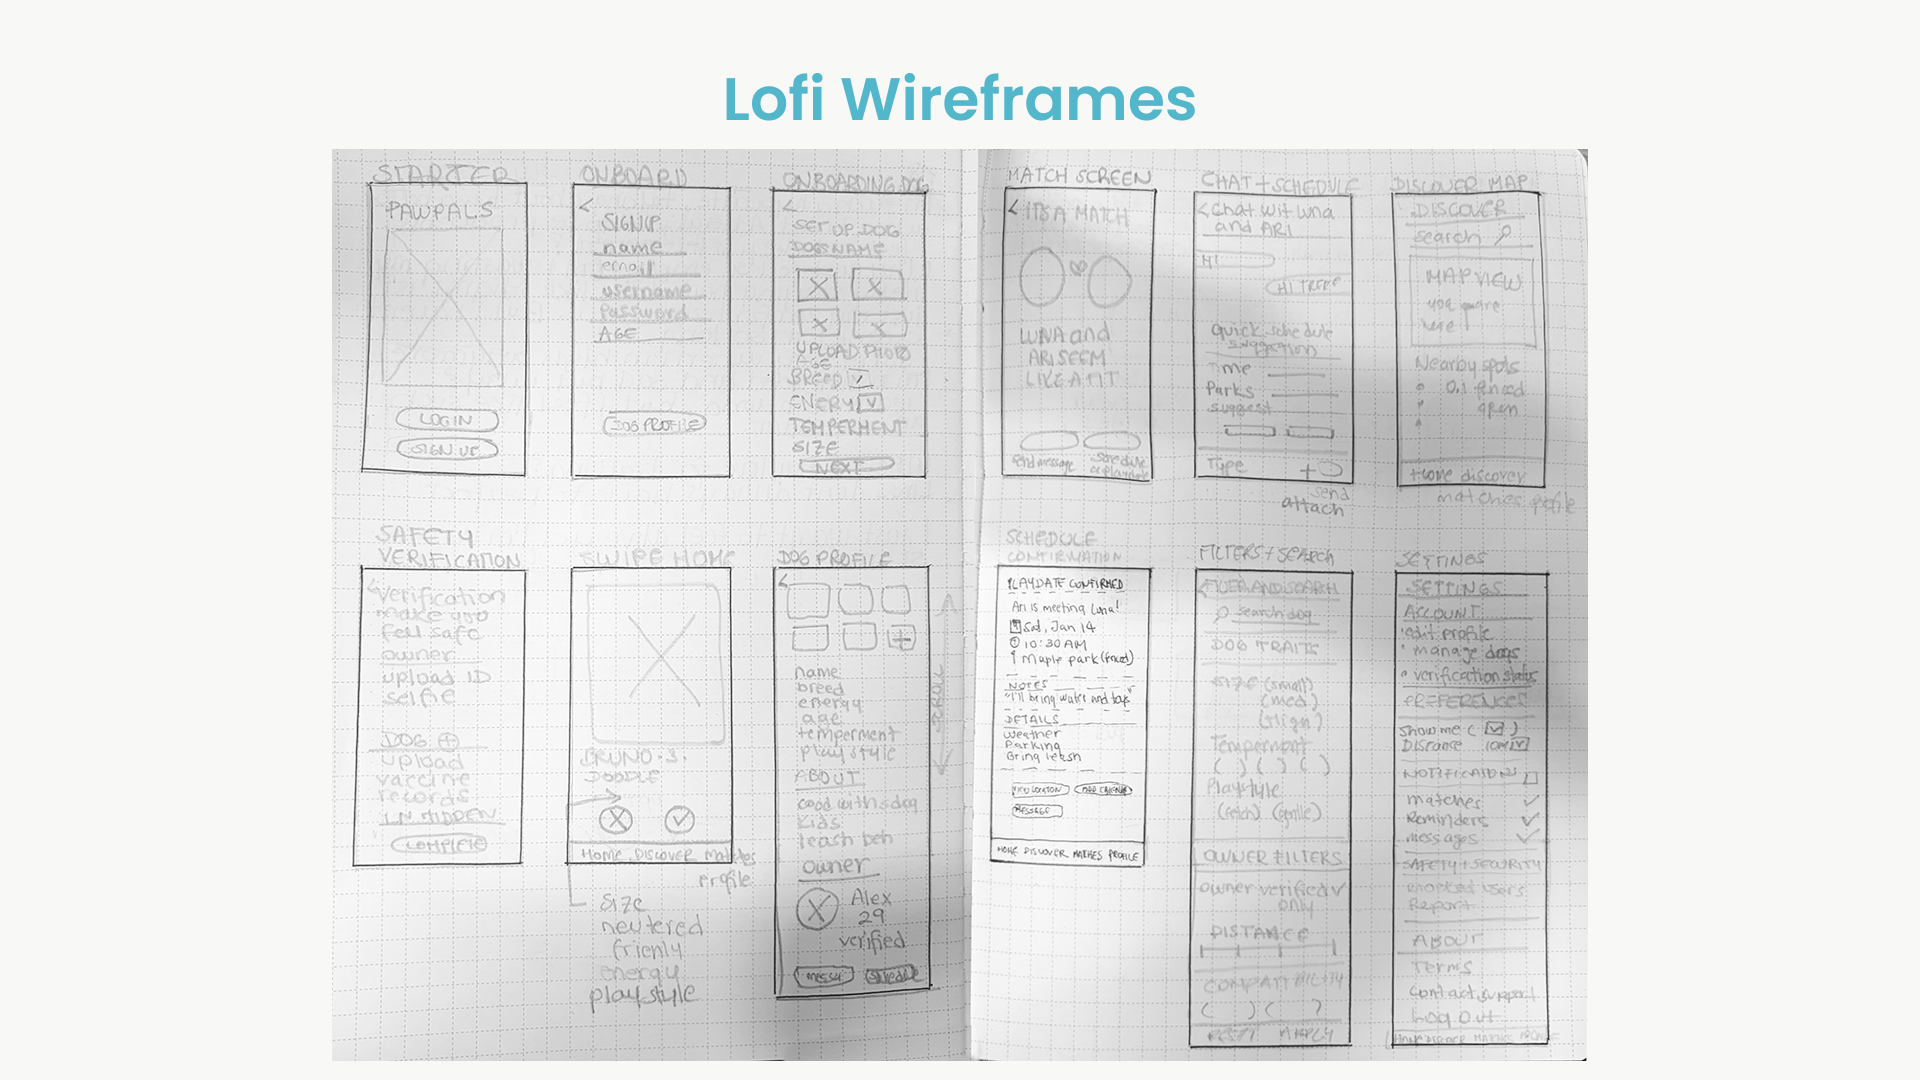 Lofi Wireframes
STARTER
PAWPALS
LOGIN
SIGN UP
ONBOARD
<
SIGNUP
name
email
username
Password
AGE
DOG PROFILE
ONBOARDING DOG
<
SET UP DOG
DOGS NAME
UPLOAD PHOTO
BREED
ENERY
TEMPERMENT
SIZE
NEXT
MATCH SCREEN
< ITS A MATCH
LUNA and
ARI SEEM
LIKE A FIT
send message
schedule
CHAT + SCHEDULE
< Chat wit luna
and ARI
HI
HI THERE
Quick schedule
suggestion
Time
Parks
suggest
Type +
send
attach
DISCOVER MAP
DISCOVER
search
MAP VIEW
you are
here
Nearby spots
0.1 fenced
open
Home discover
matches profile
SAFETY
VERIFICATION
< verification
make you
fell safe
owner
upload ID
selfie
DOG +
upload
vaccine
records
COMPLETE
SWIPE HOME
BRUNO · 3 ·
DOODLE
Home DISCOVER matches
profile
size
neutered
frienly
energy
playstyle
DOG PROFILE
<
+
SCROLL
name
breed
energy
age
temperment
play style
ABOUT
good with sdog
kids
leash beh
owner
Alex
29
verified
schedule
SCHEDULE
CONFIRMATION
PLAYDATE CONFIRMED
Ari is meeting Luna!
Sat, Jan 14
10:30 AM
Maple park (fenced)
NOTES
"I'll bring water and toys"
DETAILS
Weather
Parking
Bring leash
VIEW LOCATION
ADD CALENDAR
MESSAGE
HOME DISCOVER MATCHES PROFILE
FILTERS + SEARCH
< FILTER AND SEARCH
search dog
DOG TRAITS
size (small)
(med)
Temperment
( ) ( ) ( )
Playstyle
(fetch) (gentle)
OWNER FILTERS
owner verified
only
DISTANCE
COMPATIBILITY
( ) ( )
RESET APPLY
SETTINGS
SETTINGS
ACCOUNT
• edit profile
• manage dogs
• verification status
PREFERENCES
Show me ( )
Distance
NOTIFICATIONS
matches
Reminders
messages
SAFETY + SECURITY
blocked users
Report
ABOUT
Terms
Contact support
Log out
HOME DISCOVER MATCHES PROFILE